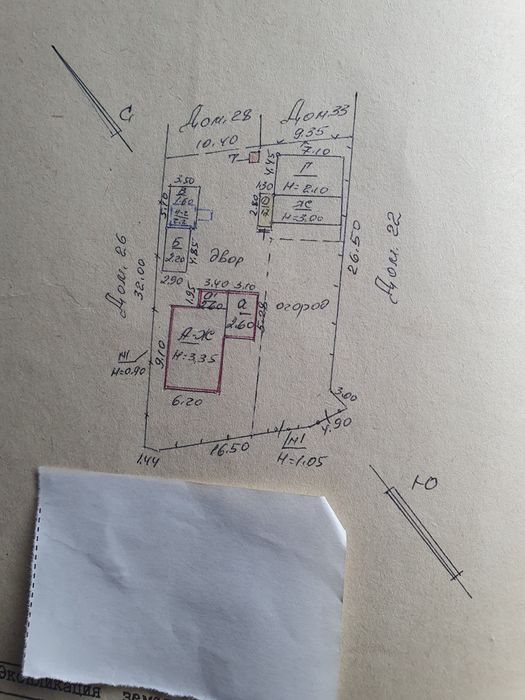 С
Дом. 28
Дом. 33
10.40
9.35
7.10
П
4.45
Г
Н=2.10
1.30
3.50
В
5.70
2.80
Ж
Н=3.00
Б
2.20
4.85
2.90
двор
Дом. 26
32.00
26.50
Дом. 22
3.40
3.10
1.95
2.60
а
2.60
5.28
огород
А-Ж
Н=3,35
9.10
N1
Н=0.90
6.20
3.00
4.90
16.50
1.44
N1
Н=1.05
Ю
Экспликация